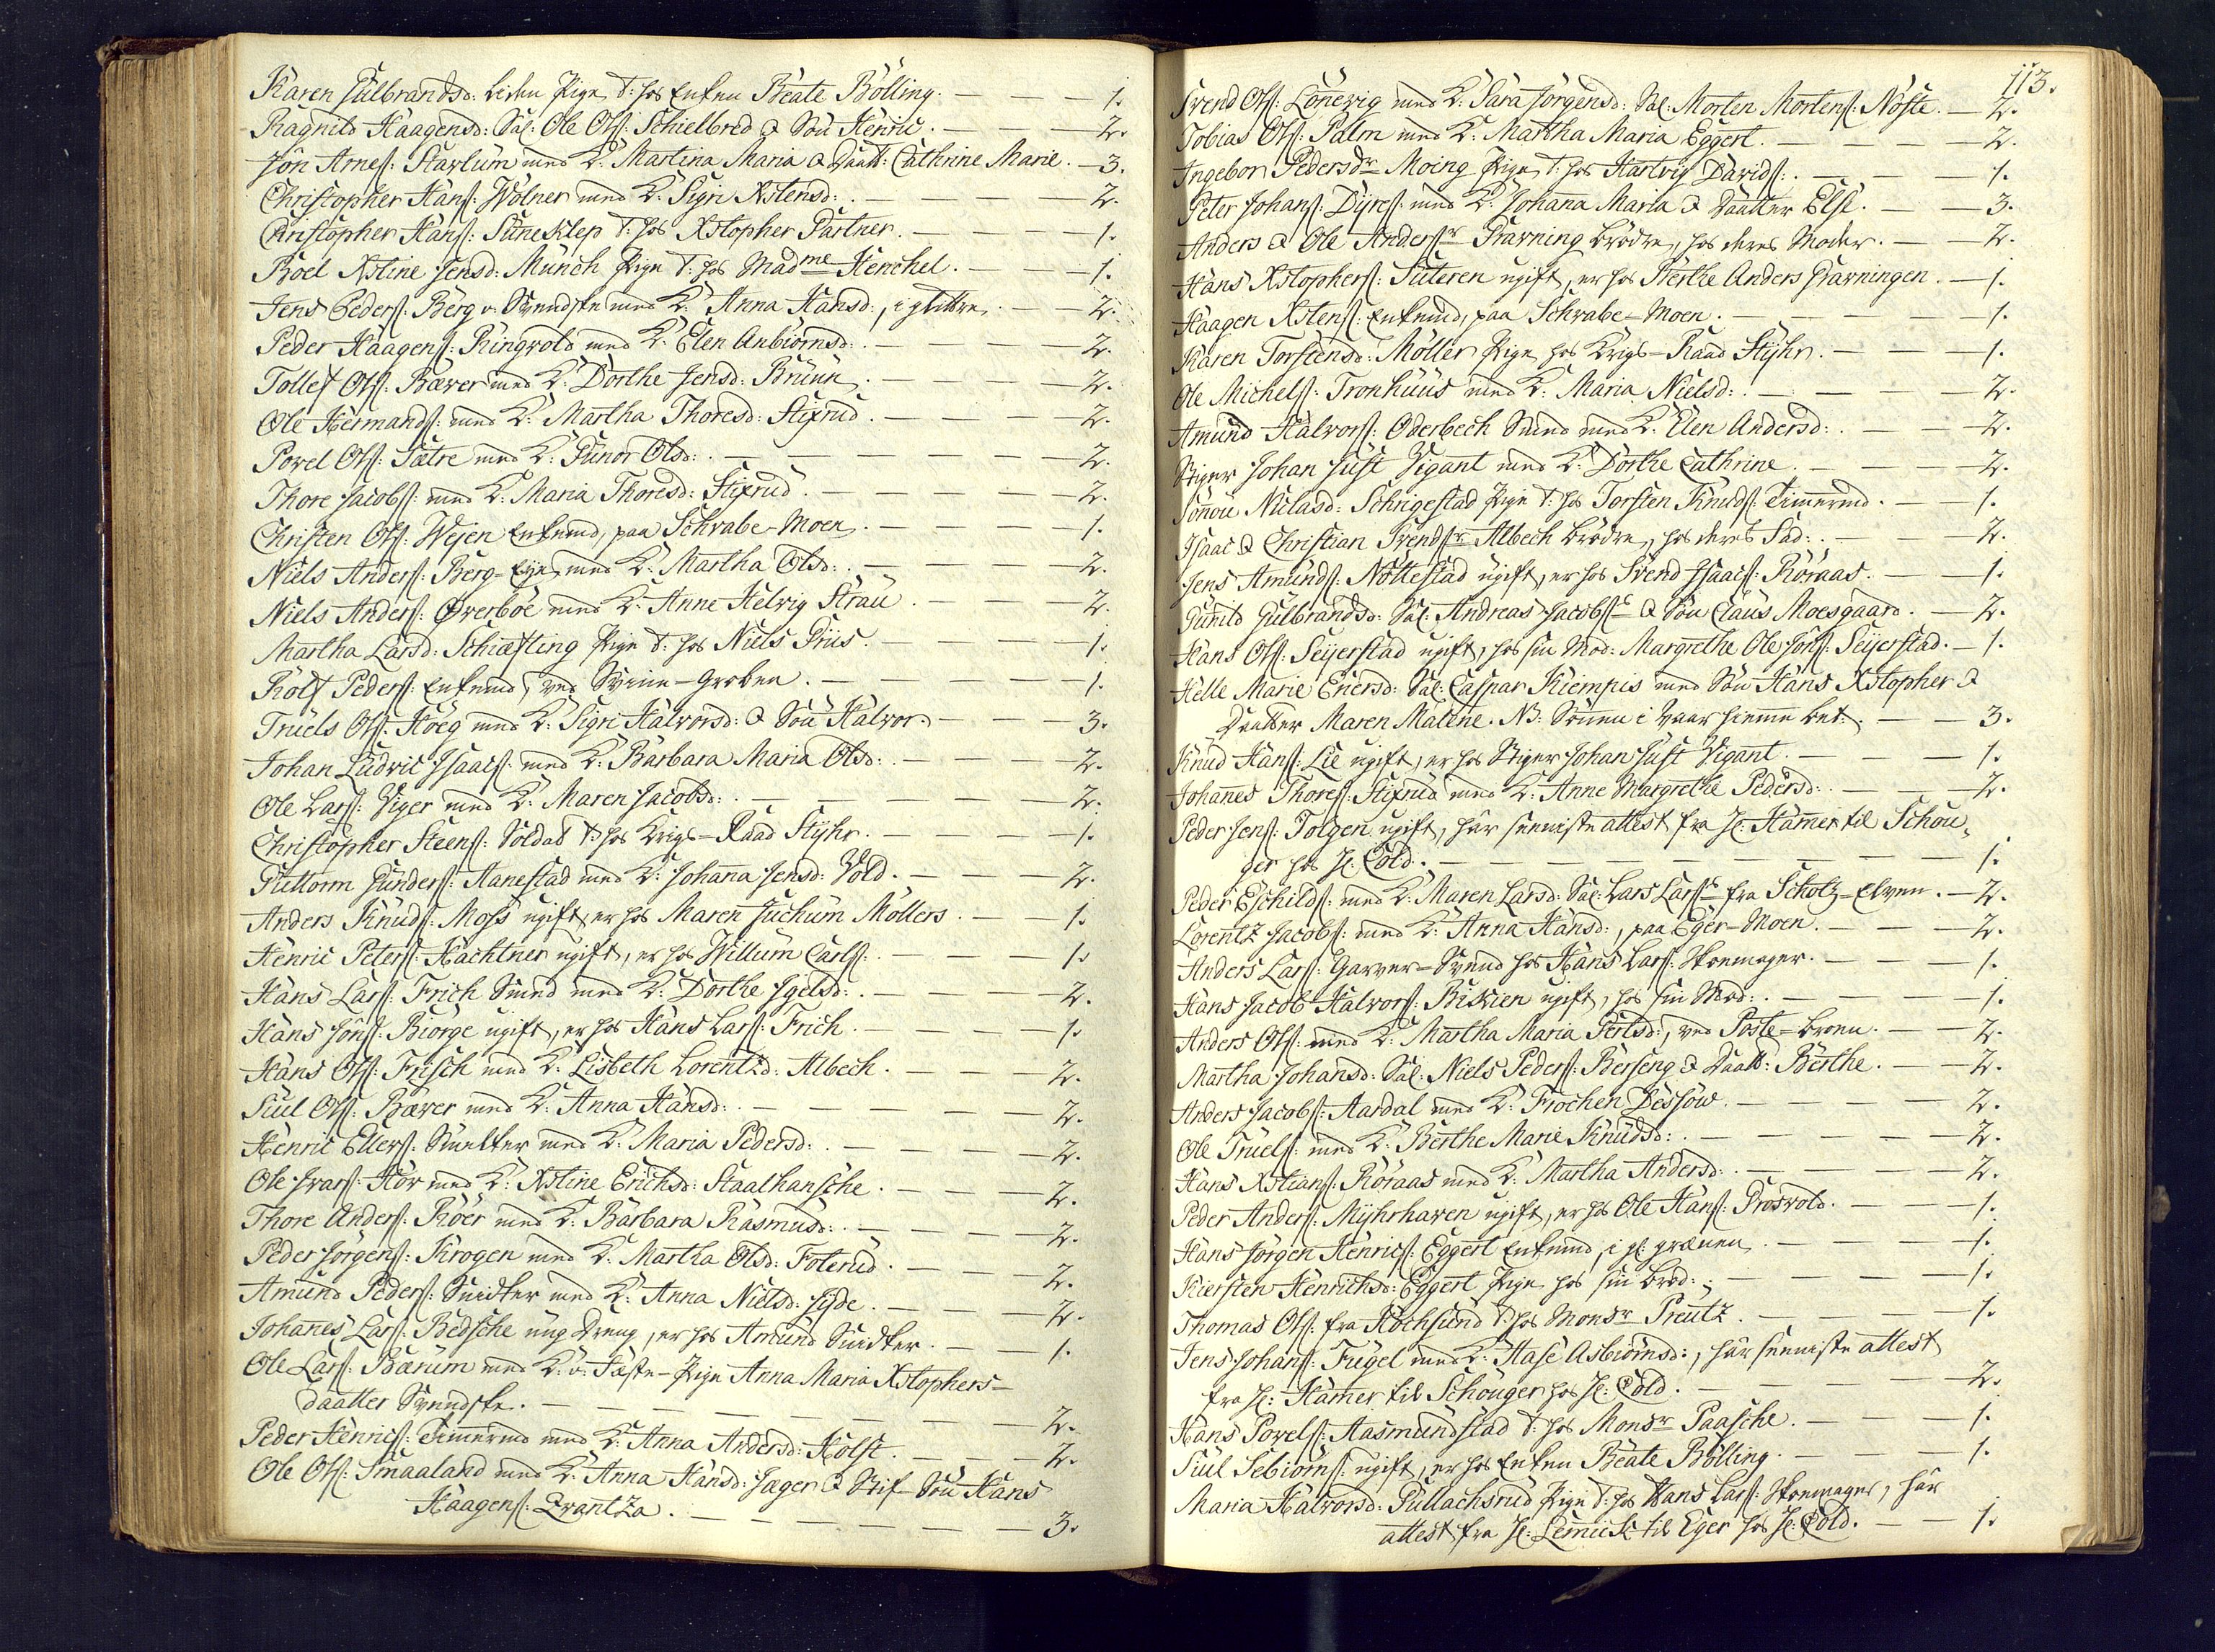 Karen Gulbrandsd: liden Pige t: hos Enken Beate Bölling. — 1.
Ragnild Haagensd: Sal: Ole Ols: Schielbred & Sön Henric. — 2.
Jön Arnes: Starlum med K: Martina Maria & Daatt: Cathrine Marie. — 3.
Christopher Hans: Wölner med K: Sigri Xstensd: — 2.
Christopher Hans: Suneklep t: hos Xstopher Partner. — 1.
Boel Xstine Jensd: Münch Pige t: hos Madme Henchel. — 1.
Jens Peders: Berg v: Svendske med K: Anna Hansd:, i — 2.
Peder Haagens: Ringvold med K: Elen Anbiörnsd: — 2.
Tollef Ols: Bæver med K: Dorthe Jensd: Brünn. — 2.
Ole Hermands: med K: Martha Thoresd: Stixrud. — 2.
Povel Ols: Sætre med K: Gunor Olsd: — 2.
Thore Jacobs: med K: Maria Thoresd: Stixrud. — 2.
Christen Ols: Wejen Enkemd, paa Schrabe-Moen. — 1.
Niels Anders: Berg-Eye med K: Martha Olsd: — 2.
Niels Anders: Øverböe med K: Anne Helvig Strau — 2.
Martha Larsd: Schiæfling Pige t: hos Niels Priis. — 1.
Rolf Peders: Enkemd, ved Svine-Groben. — 1.
Truels Ols: Høeg med K: Sigri Halvorsd: & Sön Halvor. — 3.
Johan Ludvic Isaacs: med K: Barbara Maria Olsd: — 2.
Ole Lars: Viger med K: Maren Jacobsd: — 2.
Christopher Steens: Soldat t: hos Krigs-Raad Stÿhr. — 1.
Guttorm Gunders: Hanestad med K: Johanna Jensd: Vold. — 2.
Anders Knuds: Moss ugift, er hos Maren Juchum Möllers — 1.
Henric Peters: Wachtner ugift, er hos Willum Carls: — 1.
Hans Lars: Frich Smed med K: Dorthe Igelsd: — 2.
Hans Jöns: Biörge ugift, er hos Hans Lars: Frich. — 1.
Hans Ols: Frisch med K: Lisbeth Lorentzd: Albech. — 2.
Siul Ols: Bæver med K: Anna Hansd: — 2.
Henric Ellers: Smelter med K: Maria Pedersd: — 2.
Ole Ivars: Hov med K: Xstine Erichsd: Staalhansche. — 2.
Thore Anders: Röer med K: Barbara Rasmusd: — 2.
Peder Jörgens: Krogen med K: Martha Olsd: Foterud. — 2.
Amund Peders: Snidker med K: Anna Nielsd: Jÿde. — 2.
Johannes Lars: Bedsche ung Dreng, er hos Amund Snidker. — 1.
Ole Lars: Bærum med K: v: Fæste-Pige Anna Maria Xstophers-
daatter Svendske. — 2.
Peder Henrics: Timermd med K: Anna Andersd: Holst. — 2.
Ole Ols: Smaaland med K: Anna Hansd: Jæger & Stif-Sön Hans
Haagens: Qvantza. — 3.
113.
Svend Ols: Lönevig med K: Sara Jörgensd: Sal: Morten Mortens: Nöste. — 2.
Tobias Ols: Palm med K: Martha Maria Eggert. — 2.
Ingebor Pedersdr Moing Pige t: hos Hartvig Davids: — 1.
Peter Johans: Dÿres: med K: Johana Maria & Daatter Else. — 3.
Anders & Ole Anderssr Gravning Brödre, hos deres Moder. — 2.
Hans Xstophers: Suteren ugift, er hos Berthe Anders Gravningen. — 1.
Haagen Xstens: Enkemd, paa Schrabe-Moen. — 1.
Karen Torstensd: Möller Pige hos Krigs-Raad Stÿhr. — 1.
Ole Michels: Tronhuus med K: Maria Nielsd: — 2.
Amund Halvors: Oderbech Smed med K: Elen Andersd: — 2.
Stiger Johan Just Vigant med K: Dorthe Cathrine. — 2.
Sönou Nielasd: Schrigestad Pige t: hos Torsten Knuds: Timermd. — 1.
Isaac & Christian Svendssr Albech Brödre, hos deres Fad: — 2.
Jens Amunds: Nöttestad ugift, er hos Svend Isaacs: Röraas. — 1.
Gunild Gulbrandsd: Sal: Andreas Jacobss & Sön Claus Moesgaard. — 2.
Hans Ols: Seÿerstad ugift, hos sin Mod: Margrethe Ole Jöns: Seÿerstad. — 1.
Helle Marie Enersd: Sal: Caspar Kiempis med Sön Hans Xstopher &
Daatter Maren Malene. NB: Sönnen i Vaar hiemme bet: — 3.
Knud Hans: Lie ugift, er hos Stiger Johan Just Vigant. — 1.
Johannes Thores: Stixrud med K: Anne Margrethe Pedersd: — 2.
Peder Jens: Tolgen ugift, har seeniste attest fra Hr: Hamer til Schou-
ger hos Hr: Cold. — 1.
Peder Eschilds: med K: Maren Larsd: Sal: Lars Larss fra Scholtz-Elven. — 2.
Lorentz Jacobs: med K: Anna Hansd:, paa Eger-Moen. — 2.
Anders Lars: Garver-Svend hos Hans Lars: Skoemager. — 1.
Hans Jacob Halvors: Biskien ugift, hos sin Mod: — 1.
Anders Ols: med K: Martha Maria Perlsd:, ved Poste-Broen. — 2.
Martha Johansd: Sal: Niels Peders: Berseng & Daatt: Berthe. — 2.
Anders Jacobs: Aardal med K: Frochen Dessow. — 2.
Ole Truels: med K: Berthe Marie Knudsd: — 2.
Hans Xstians: Röraas med K: Martha Andersd: — 2.
Peder Anders: Mÿhrhaven ugift, er hos Ole Hans: Grosvold. — 1.
Hans Jörgen Henrics: Eggert Enkemd, i gl: — 1.
Kiersten Henrichsd: Eggert Pige hos sin Brod: — 1.
Thomas Ols: fra Hochsund t: hos Monsr Preutz. — 1.
Jens Johans: Fugel med K: Aase Asbiörnsd:, har seeniste attest
fra Hr: Hamer til Schouger hos Hr: Cold. — 2.
Hans Povels: Aasmundstad t: hos Monsr Paasche. — 1.
Siul Sebiörns: ugift, er hos Enken Beate Bölling. — 1.
Maria Halvorsd: Gullachsrud Pige t: hos Hans Lars: Skoemager, har
attest fra Hr: Lemiich til Eger hos Hr: Cold. — 1.